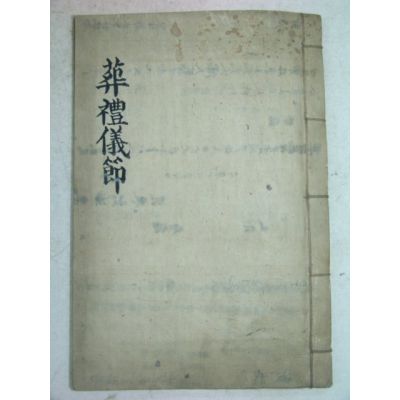 葬禮儀節